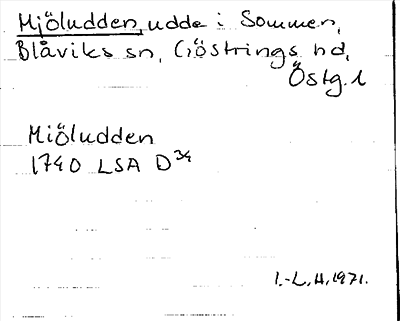 Mjöludden, udde i Sommen,
Blåviks sn, Göstrings hd,
Östg. l
Miöludden
1740 LSA D34
I.-L. H. 1971.